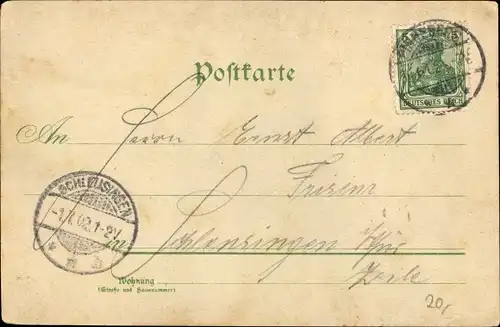 Postkarte
DEUTSCHES REICH
An Herrn Ernst Albert
Friseur
SCHLEUSINGEN
-1.7.02.1-2V.
in Schleusingen Thür
Wohnung
(Straße und Hausnummer)
20,